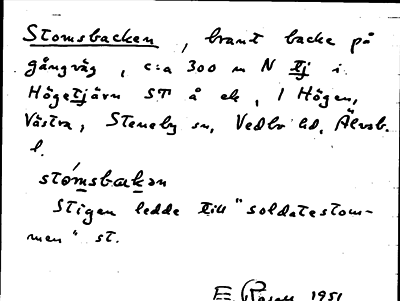 Stomsbacken, brant backe på
gångväg, c:a 300 m N tj i
Högetjärn ST å ek, 1 Högen,
Västra, Steneby sn, Vedbo hd, Älvsb.
l.
stómsbakən
Stigen ledde till "soldatestom-
men" st.
E. 1951